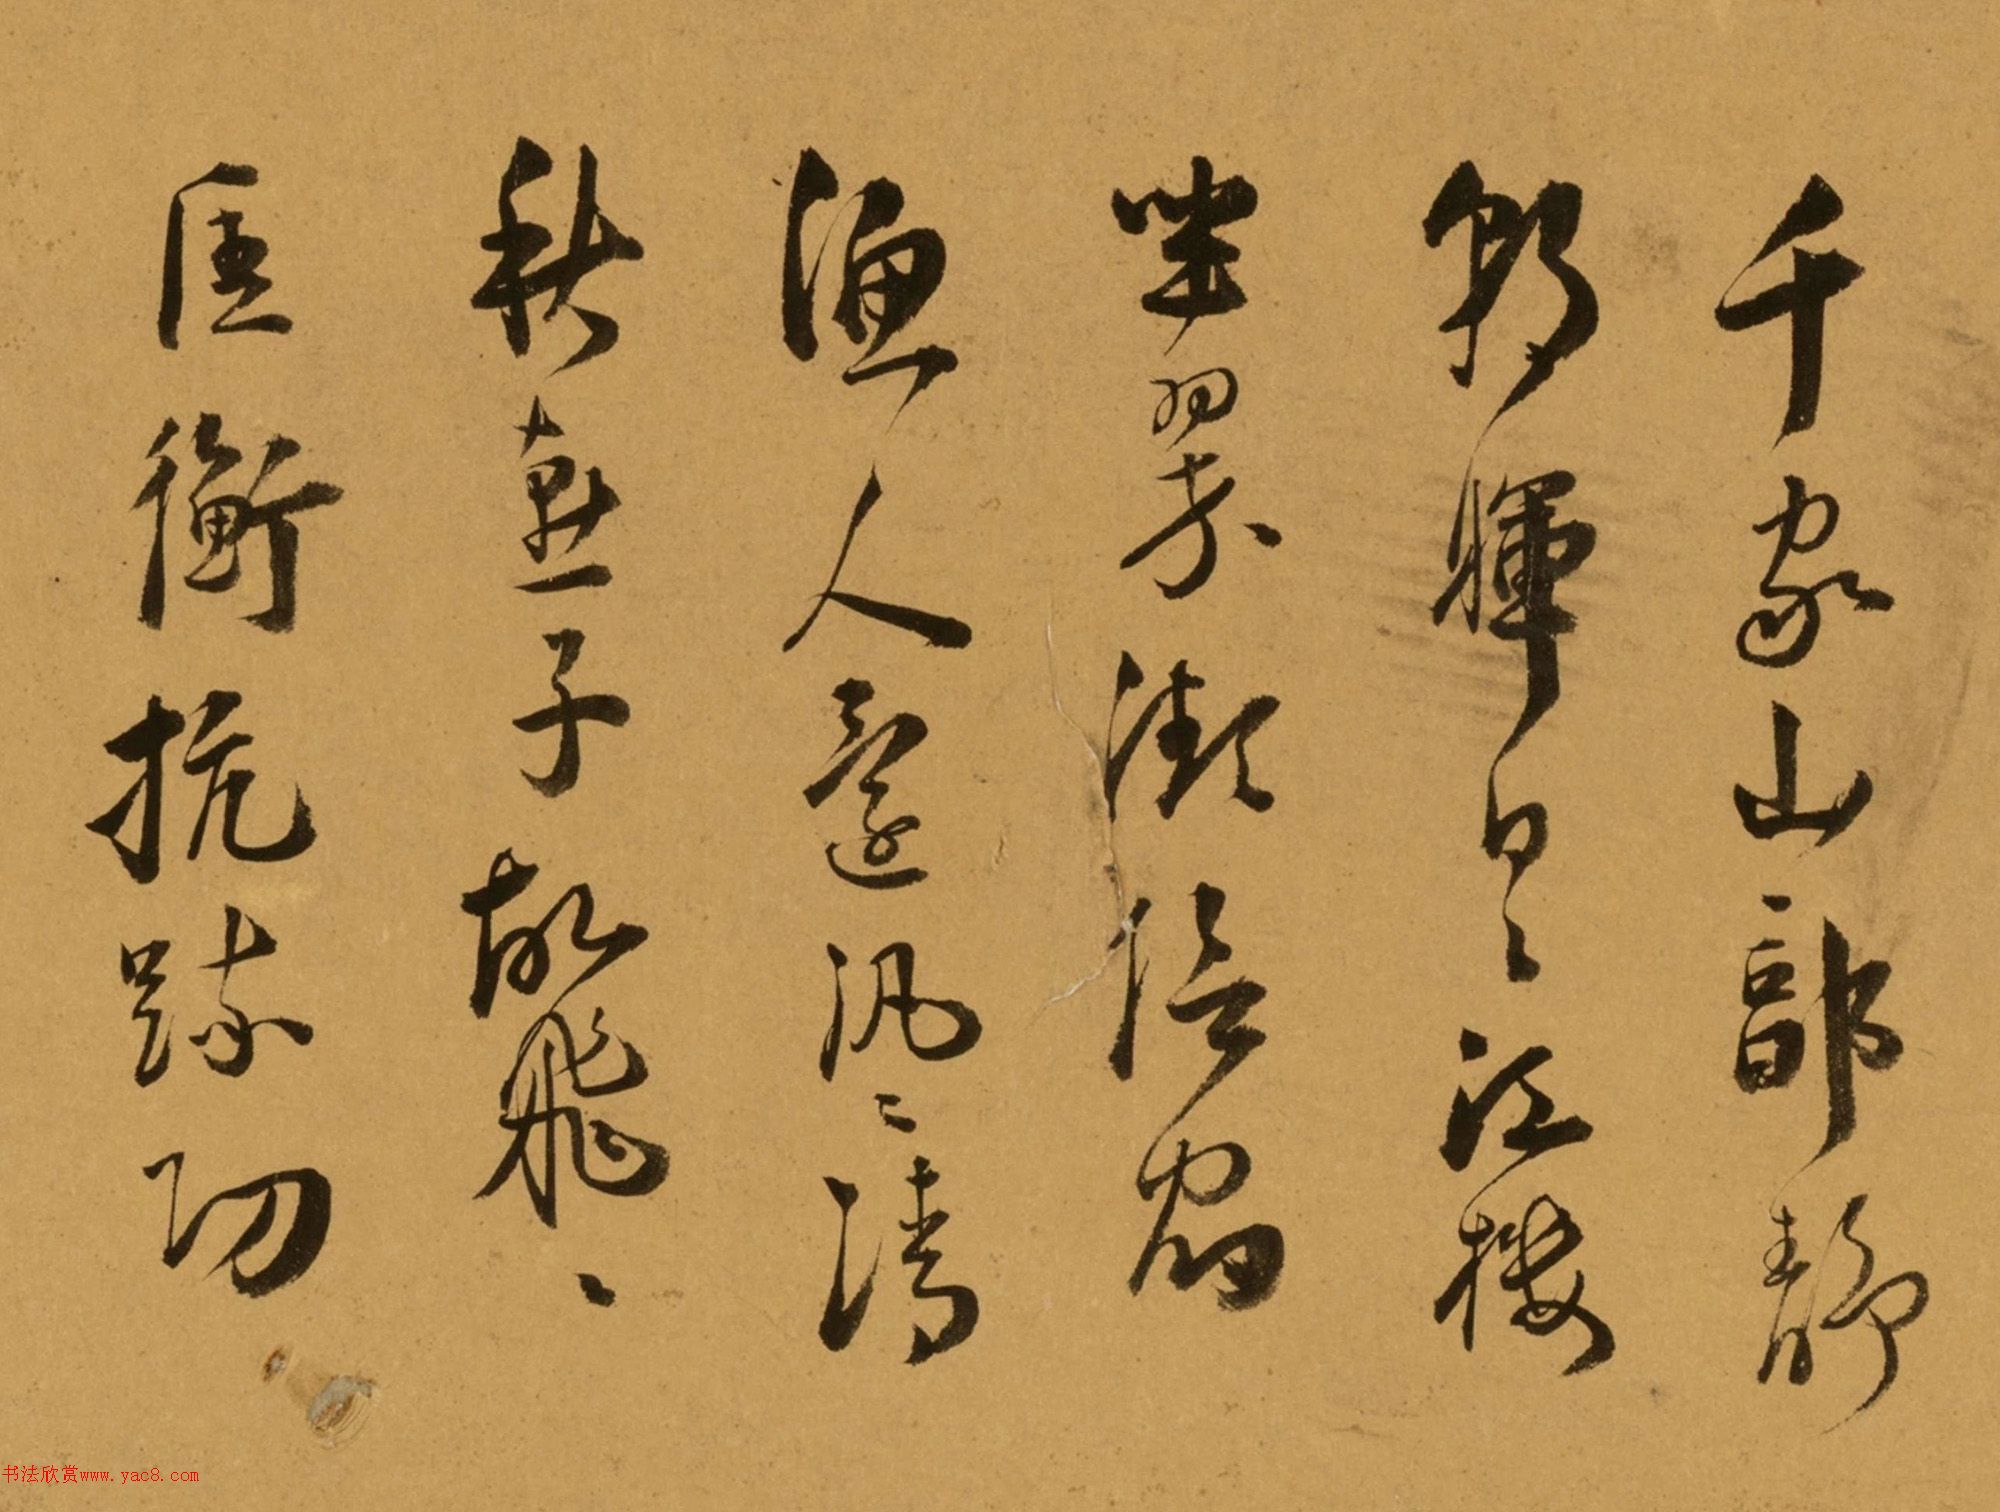 千家山郭靜
朝暉日〻江樓
坐翠微信宿
漁人還汎〻清
秋燕子故飛〻
匡衡抗疏功
书法欣赏www.yac8.com